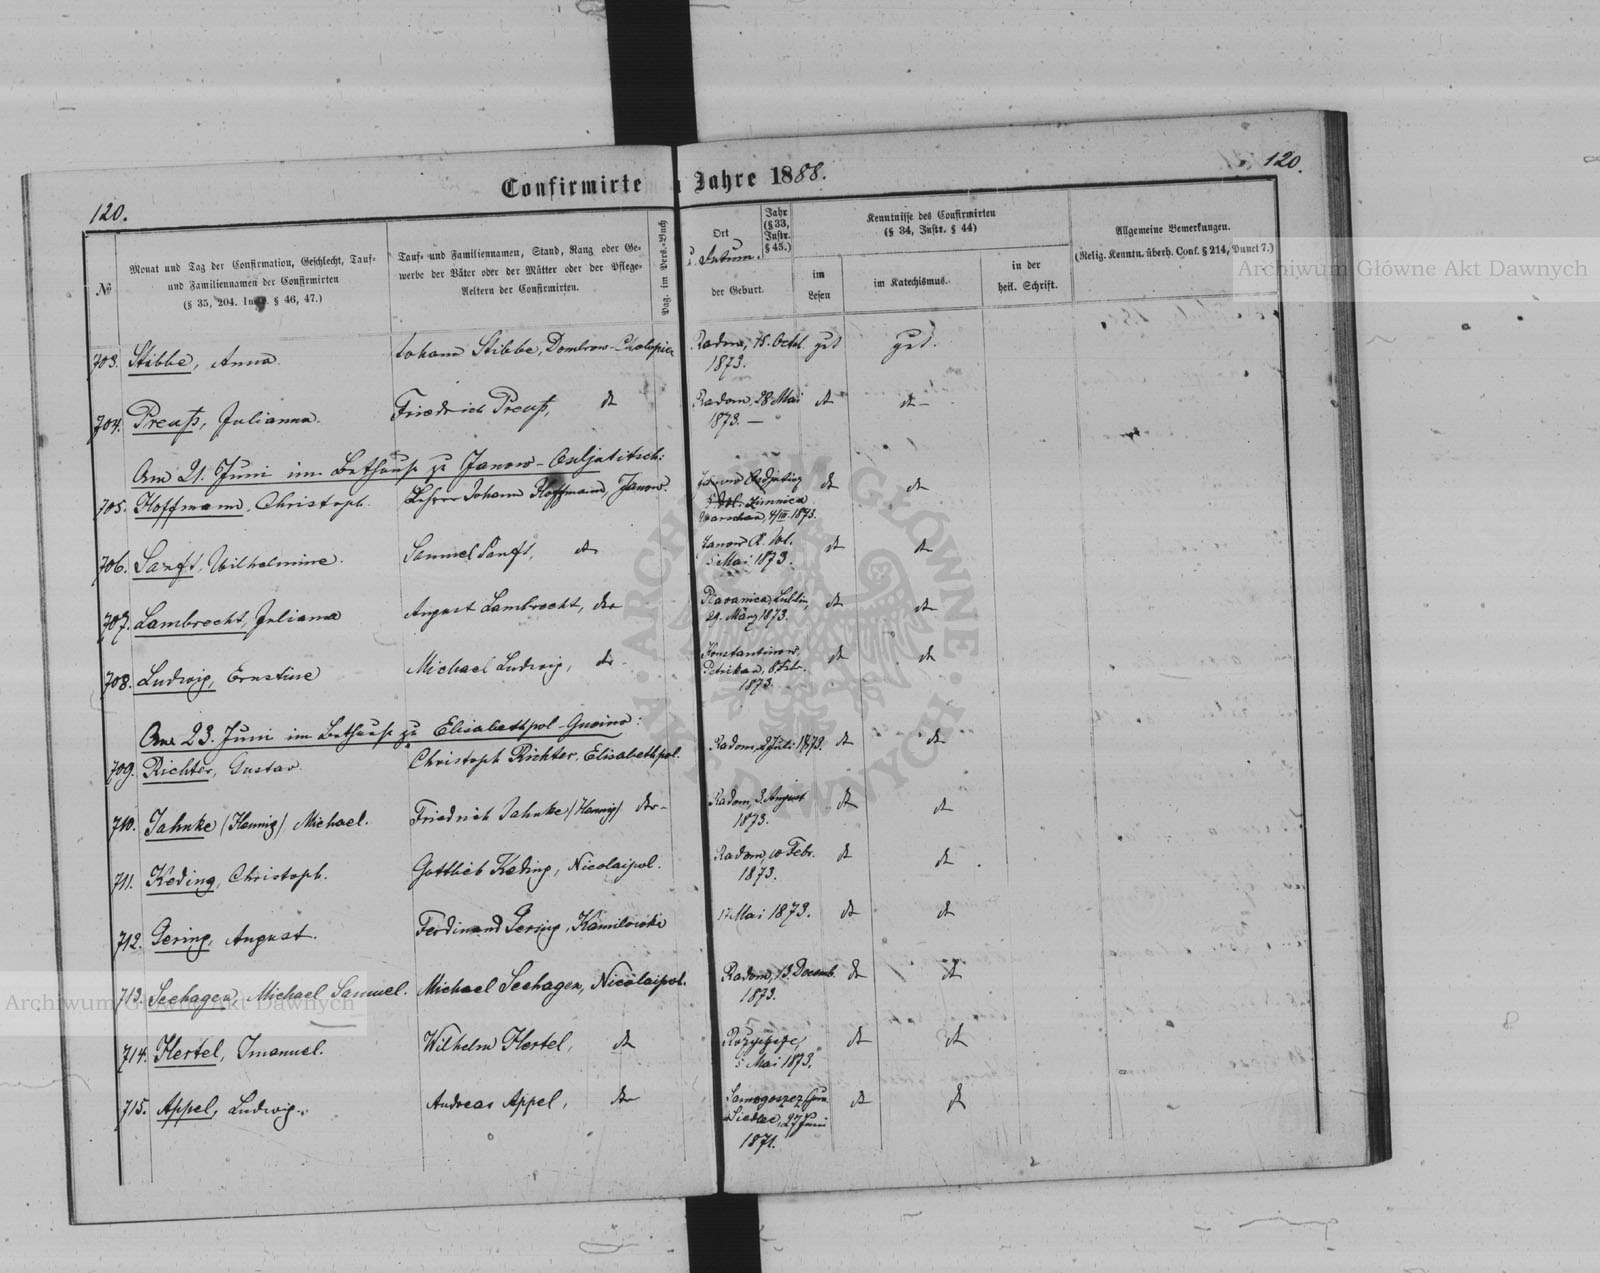 Confirmirte Jahre 1888.
120.
120.
№
Monat und Tag der Confirmation, Geschlecht, Tauf-
und Familiennamen der Confirmirten
(§ 35, 204. Instr. § 46, 47.)
Tauf- und Familiennamen, Stand, Rang oder Ge-
werbe der Väter oder der Mütter oder der Pflege-
Aeltern der Confirmirten.
Pag. im Pers.-Buch
Ort
u. Datum
der Geburt.
Jahr
(§ 33,
Instr.
§ 45.)
Kenntnisse des Confirmirten
(§ 34, Instr. § 44)
im
Lesen
im Katechismus.
in der
heil. Schrift.
Allgemeine Bemerkungen.
(Relig. Kenntn. überh. Conf. § 214, Punct 7.)
703. Stibbe, Anna Johann Stibbe, Dombrow- Radom, 15. Octob. gut gut.
1873.
704. Preuß, Julianna. Friedrich Preuß, do Radom, 28 Mai do do
1873. —
Am 21. Juni im Bethause zu Janow-Osljatitsch:
705. Hoffmann, Christoph. Lehrer Johann Hoffmann, Janow. do do
Warschau, 4/III. 1873.
706. Sanft, Wilhelmine. Samuel Sanft, do Janow do do
5 Mai 1873.
707. Lambrecht, Julianna August Lambrecht, do Lublin, do do
29. März 1873.
708. Ludwig, Ernstine Michael Ludwig, do Konstantinow, do do
Petrikau, 8 Febr.
1873.
Am 23. Juni im Bethause zu Elisabethpol-Gnoino:
709. Richter, Gustav. Christoph Richter, Elisabethpol. Radom, 2 Juli 1873. do do
710. Jahnke (Hennig) Michael. Friedrich Jahnke (Hennig) do Radom, 3. August do do
1873.
711. Keding, Christoph. Gottlieb Keding, Nicolaipol. Radom, 10 Febr. do do
1873.
712. Gering, August. Ferdinand Gering, Kamilowka 17 Mai 1873. do do
713. Seehagen, Michael Samuel. Michael Seehagen, Nicolaipol. Radom, 13. Decemb. do do
1873.
714. Hertel, Imanuel. Wilhelm Hertel, do do do
5 Mai 1873.
715. Appel, Ludwig. Andreas Appel, do do do
Siedlec, 27 Juni
1871.
Archiwum Główne Akt Dawnych
Archiwum Główne Akt Dawnych
ARCHIWUM GŁÓWNE AKT DAWNYCH